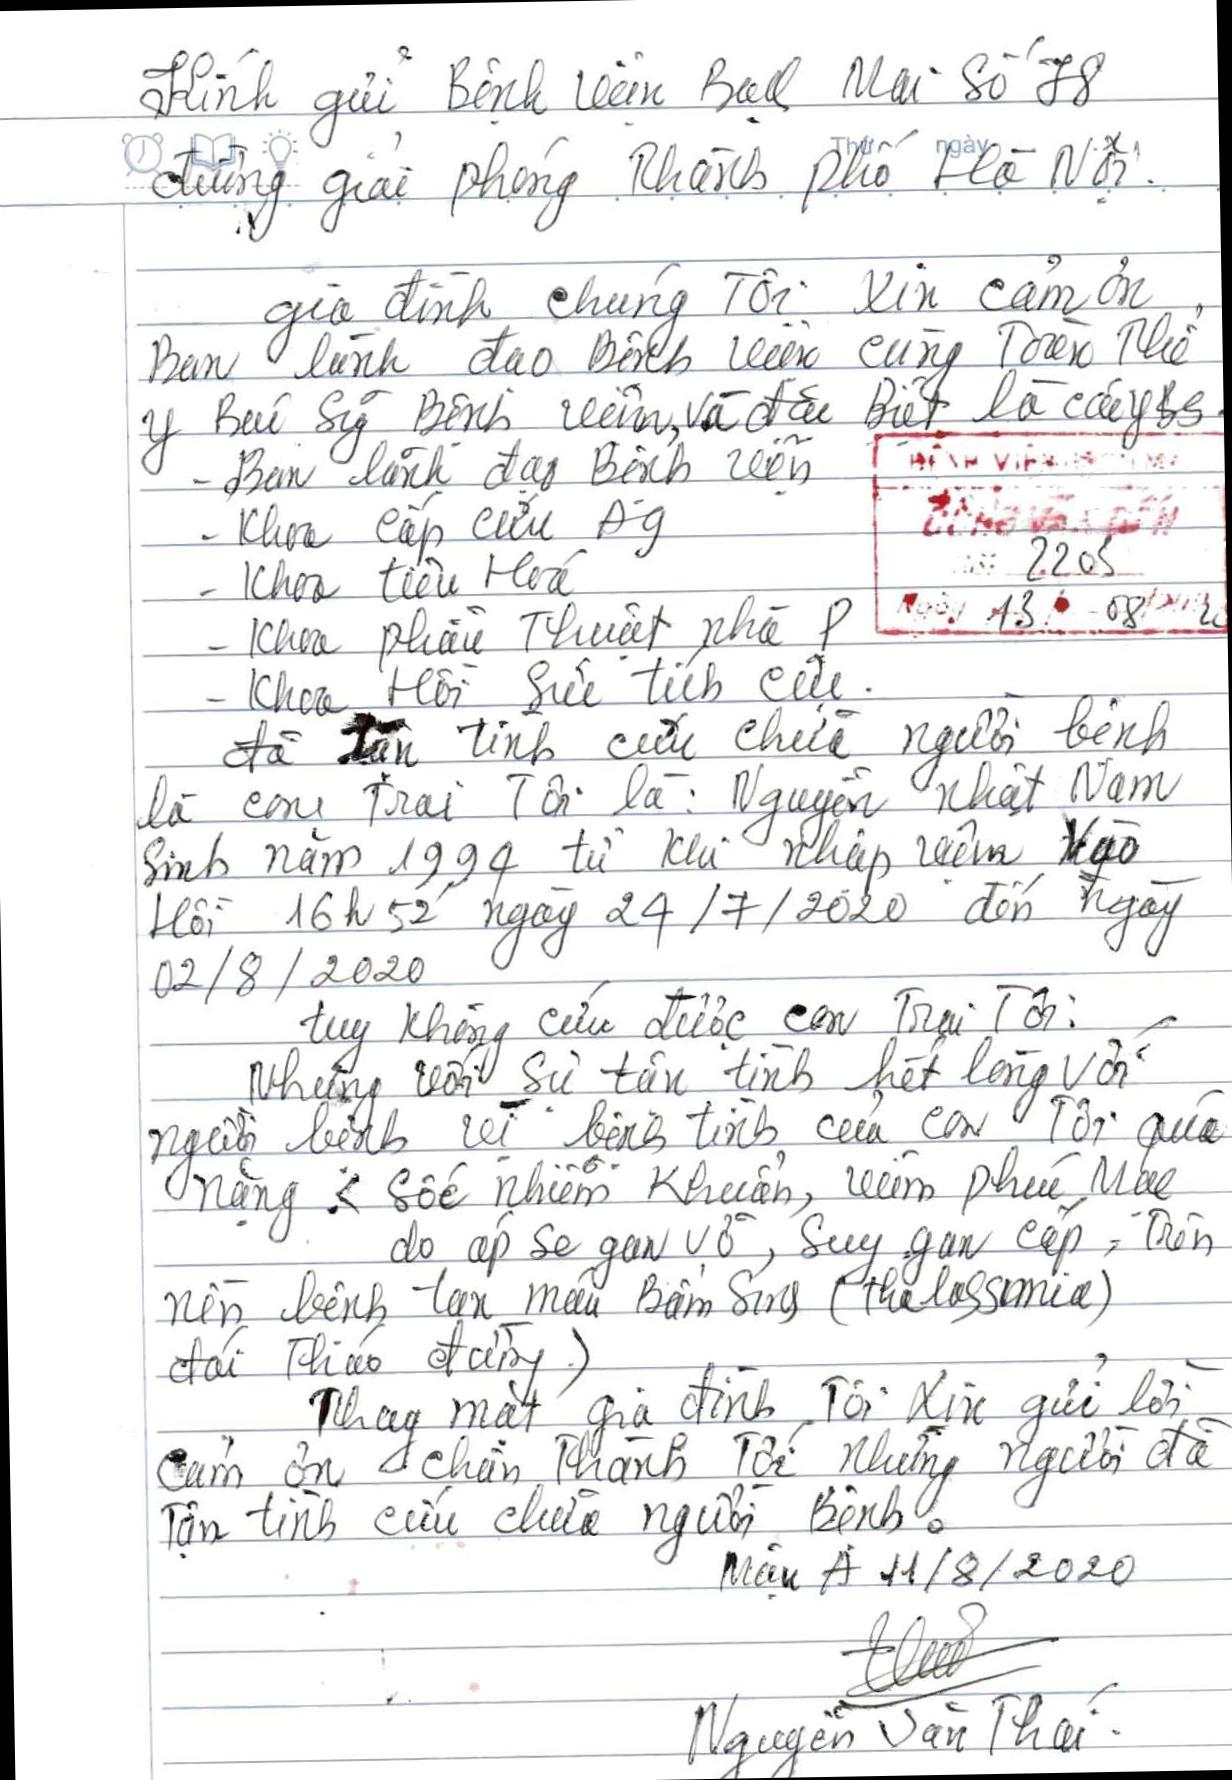 Kính gửi Bệnh viện Bạch Mai Số 78
Thứ ngày
đường giải phóng Thành phố Hà Nội.
gia đình chúng Tôi Xin cảm ơn
Ban lãnh đạo Bệnh viện cùng Toàn Thể
y Bác Sỹ Bệnh viện, và đặc Biệt là các y bs
- Ban lãnh đạo Bệnh viện
BỆNH VIỆN BẠCH MAI
CÔNG VĂN ĐẾN
- Khoa cấp cứu A9
2205
- Khoa tiêu Hoá
Ngày 13 08
- Khoa phẫu Thuật nhà P
- Khoa Hồi Sức tích cực.
đã tận tình cứu chữa người bệnh
là con Trai Tôi là: Nguyễn nhật Nam
Sinh năm 1994 từ khi nhập viện vào
Hồi 16h 52' ngày 24/7/2020 đến ngày
02/8/2020
tuy không cứu được con Trai Tôi.
Nhưng với sự tận tình hết lòng với
người bệnh vì bệnh tình của con Tôi quá
nặng: Sốc nhiễm Khuẩn, viêm phúc Mạc
do áp se gan vỡ, Suy gan cấp, Trên
nền bệnh tan máu Bẩm Sinh (thalassmia)
đái Tháo đường)
Thay mặt gia đình Tôi Xin gửi lời
cảm ơn chân Thành Tới những người đã
Tận tình cứu chữa người Bệnh.
Mậu A 11/8/2020
Nguyễn Văn Thái.